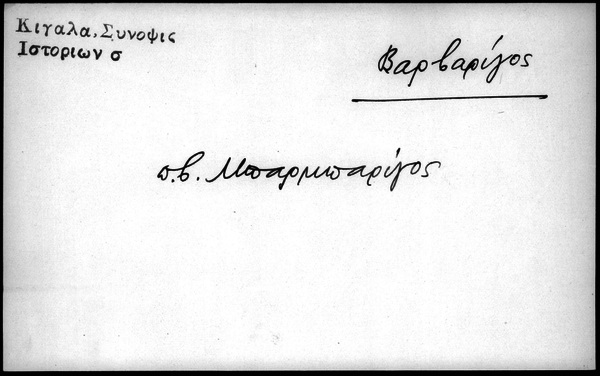 Κιγαλα, Συνοψις
Ιστοριων σ
Βαρβαρίγος
π.β. Μπαρμπαρίγος